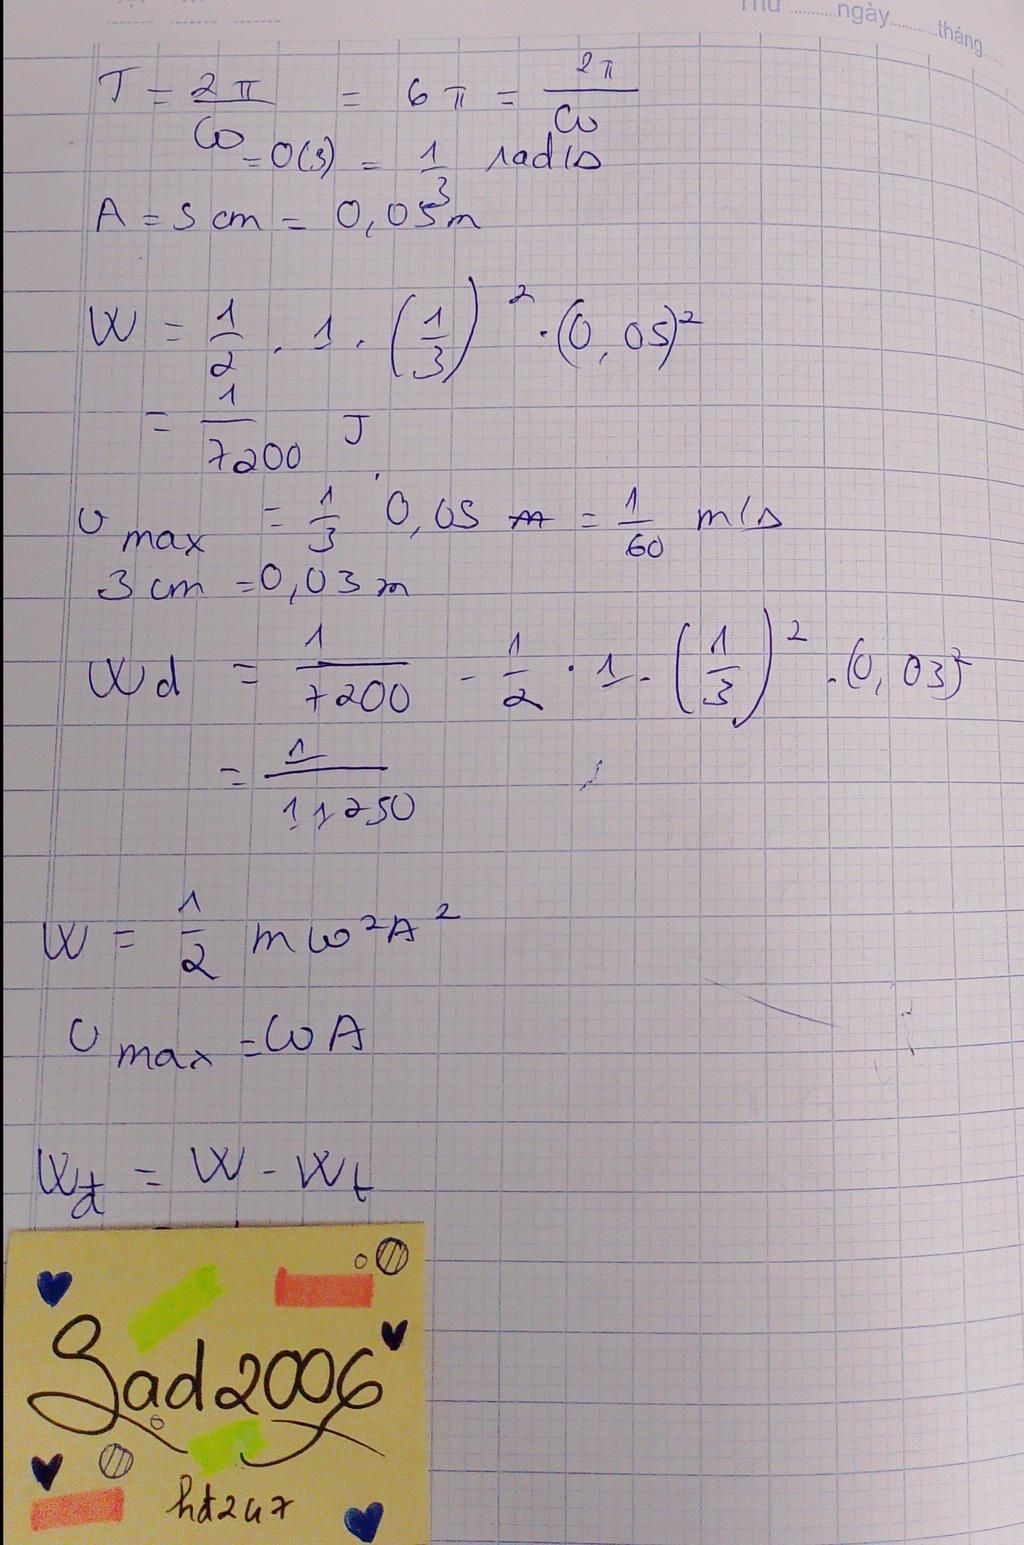 Thứ ..........ngày..........tháng
T = 2π/ω = 6π = 2π/ω
= 0(3) = 1/3 rad/s
A = 5 cm = 0,05 m
W = 1/2 . 1 . (1/3)² . (0,05)²
= 1/7200 J
v max = 1/3 0,05 = 1/60 m/s
3 cm = 0,03 m
Wd = 1/7200 - 1/2 . 1 . (1/3)² . (0,03)²
= 1/11250
W = 1/2 mω²A²
v max = ωA
Wd = W - Wt
Sad2006
hd247